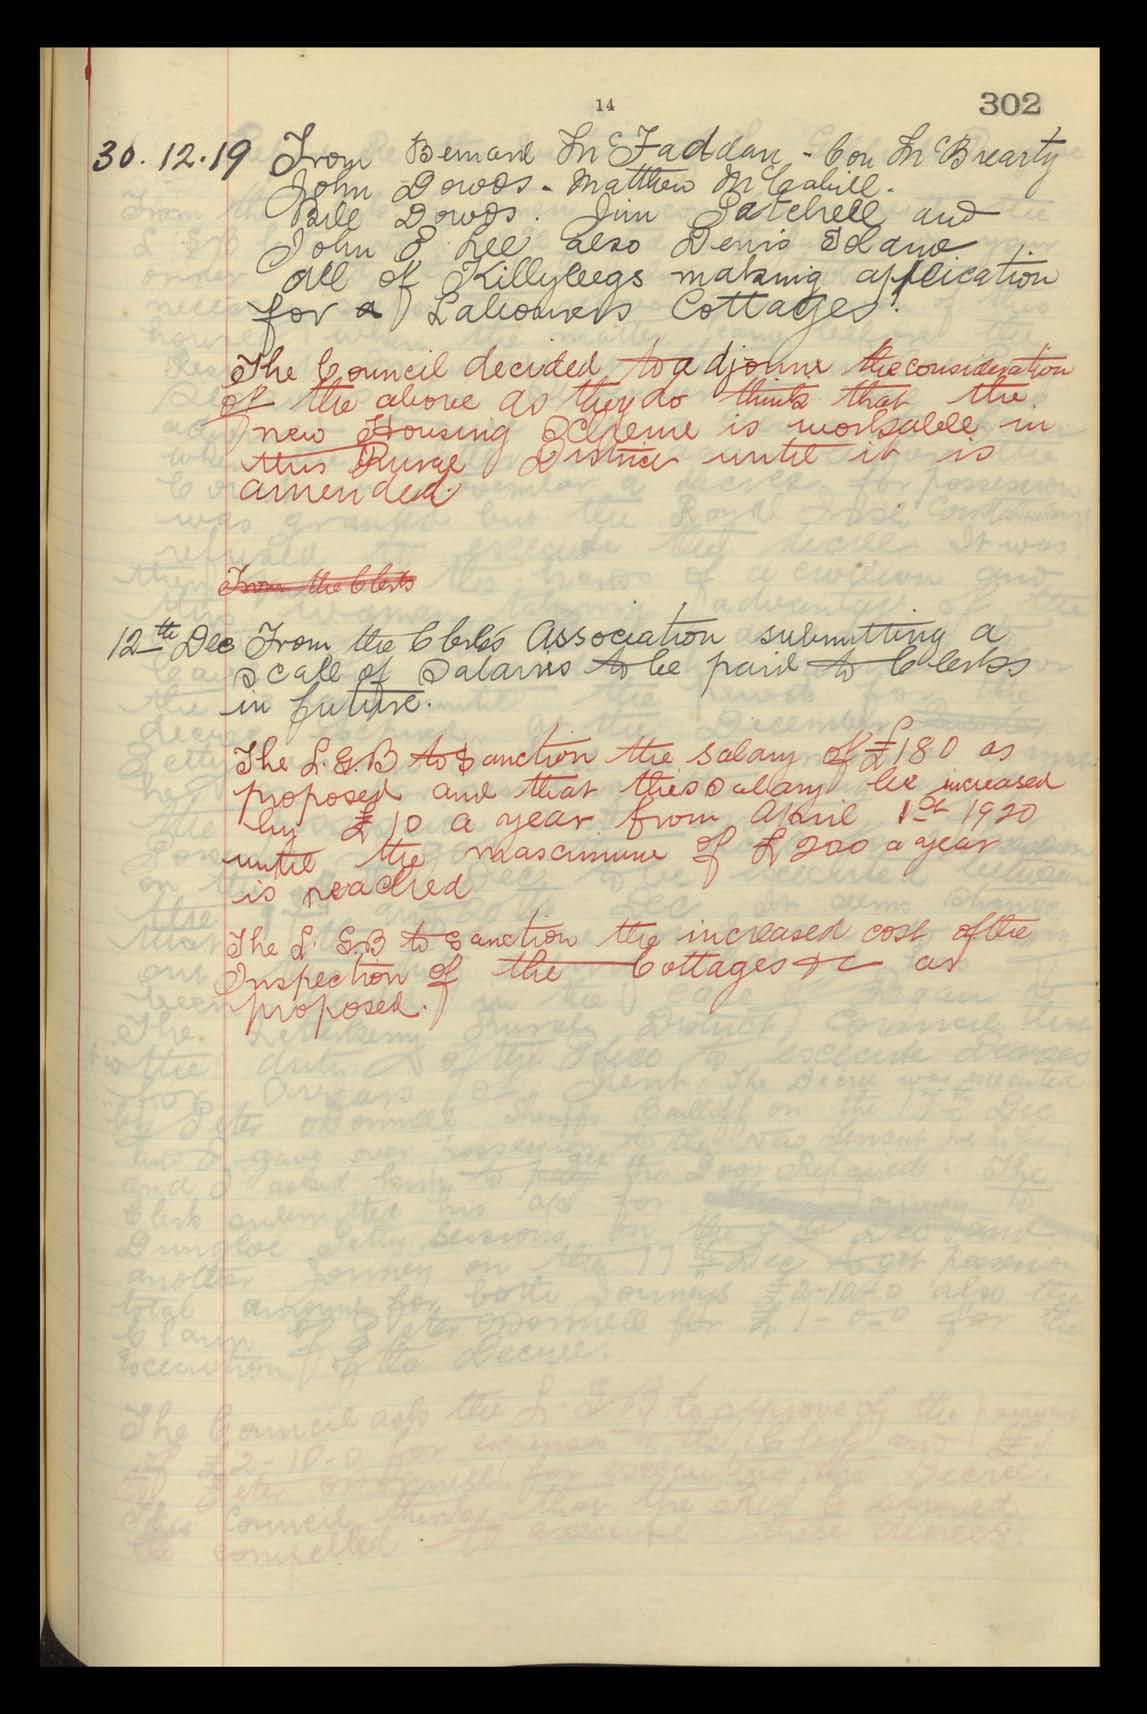 14
302
30.12.19 From Bernard McFaddan - Con McBrearty
John Dowds - Matthew McCahill.
Bill Dowds. Jim Satchell and
John E Lee also Denis
all of Killybegs making application
for a Labourers Cottages.
The Council decided to adjourne the consideration
of the above as they do think that the
new Housing Scheme is workable in
this Rural District until it is
amended.
From the Clerks
12th Dec From the Clerks Association submitting a
scale of Salaries to be paid to Clerks
in future.
The L.G.B to Sanction the Salary of £180 as
proposed and that this Salary be increased
by £10 a year from April 1st 1920
until the mascimume of £200 a year
is reached
The L. G.B to sanction the increased cost of the
Inspection of the Cottages &c as
proposed.